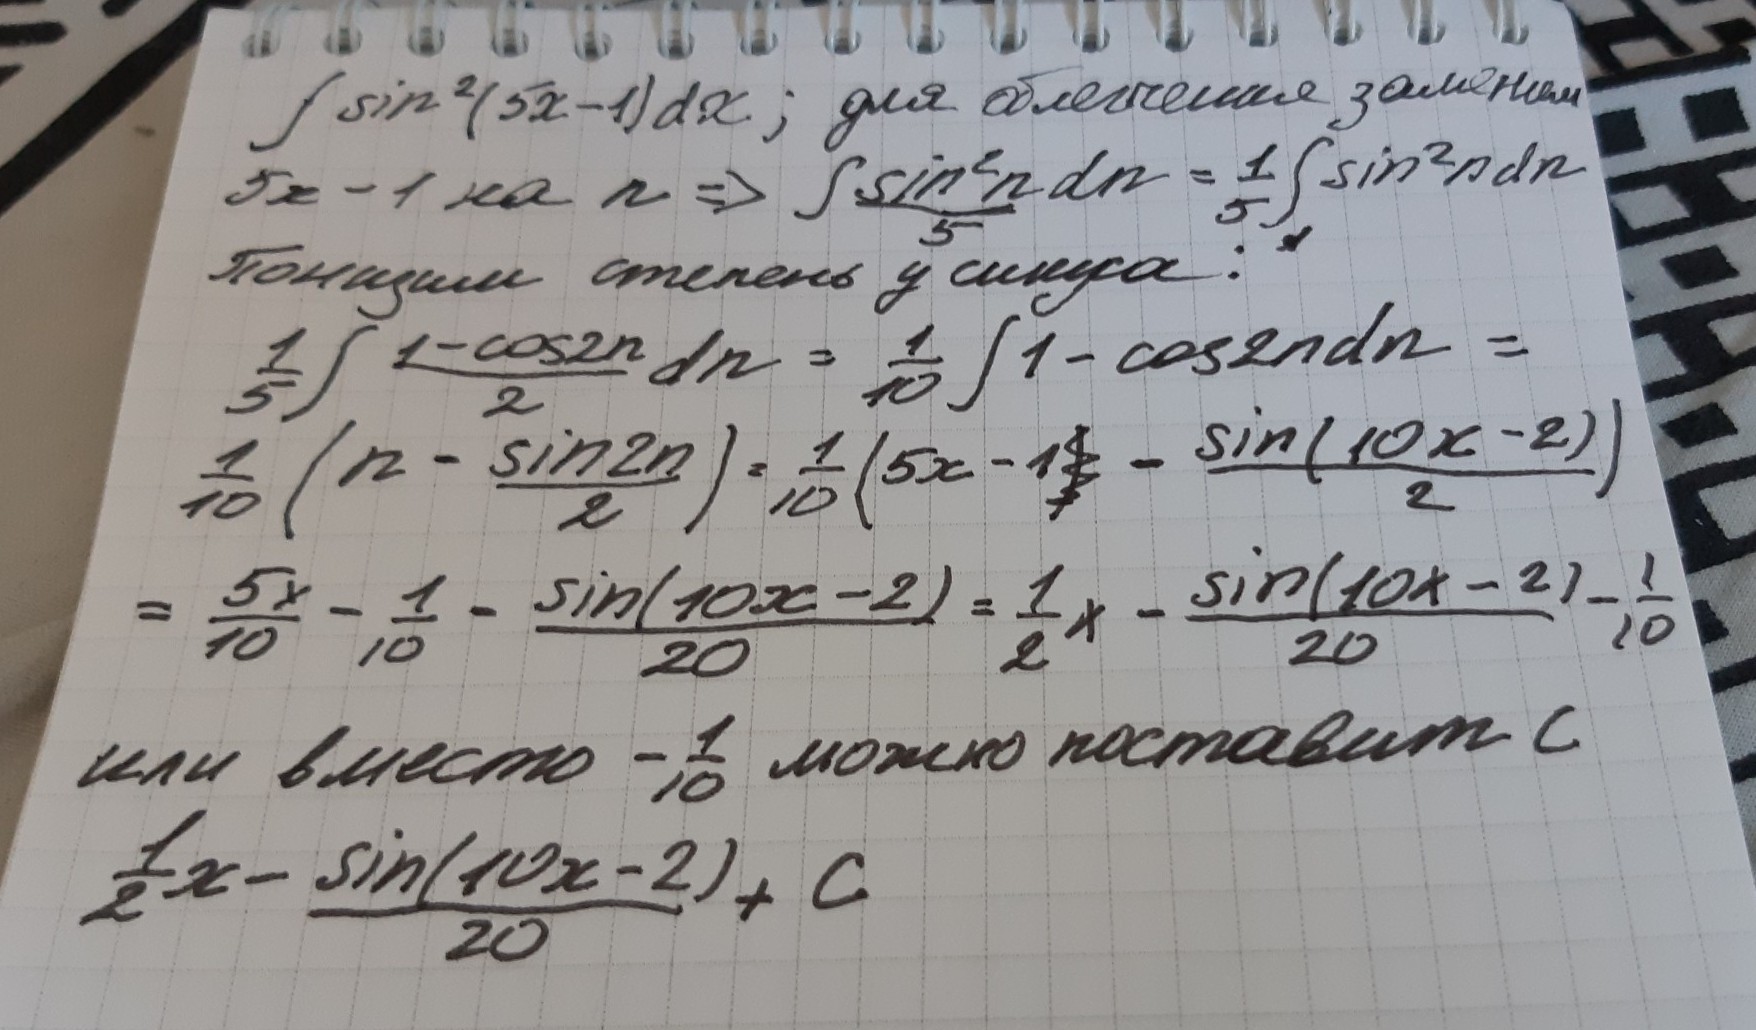 ∫ sin²(5x-1)dx; для облегчения заменим
5x - 1 на n => ∫ sin²n/5 dn = 1/5 ∫ sin²n dn
Понизим степень у синуса:
1/5 ∫ (1-cos2n)/2 dn = 1/10 ∫ 1 - cos2n dn =
1/10 (n - sin2n/2) = 1/10 (5x - 1 - sin(10x-2)/2)
= 5x/10 - 1/10 - sin(10x-2)/20 = 1/2 x - sin(10x-2)/20 - 1/10
или вместо -1/10 можно поставит C
1/2 x - sin(10x-2)/20 + C